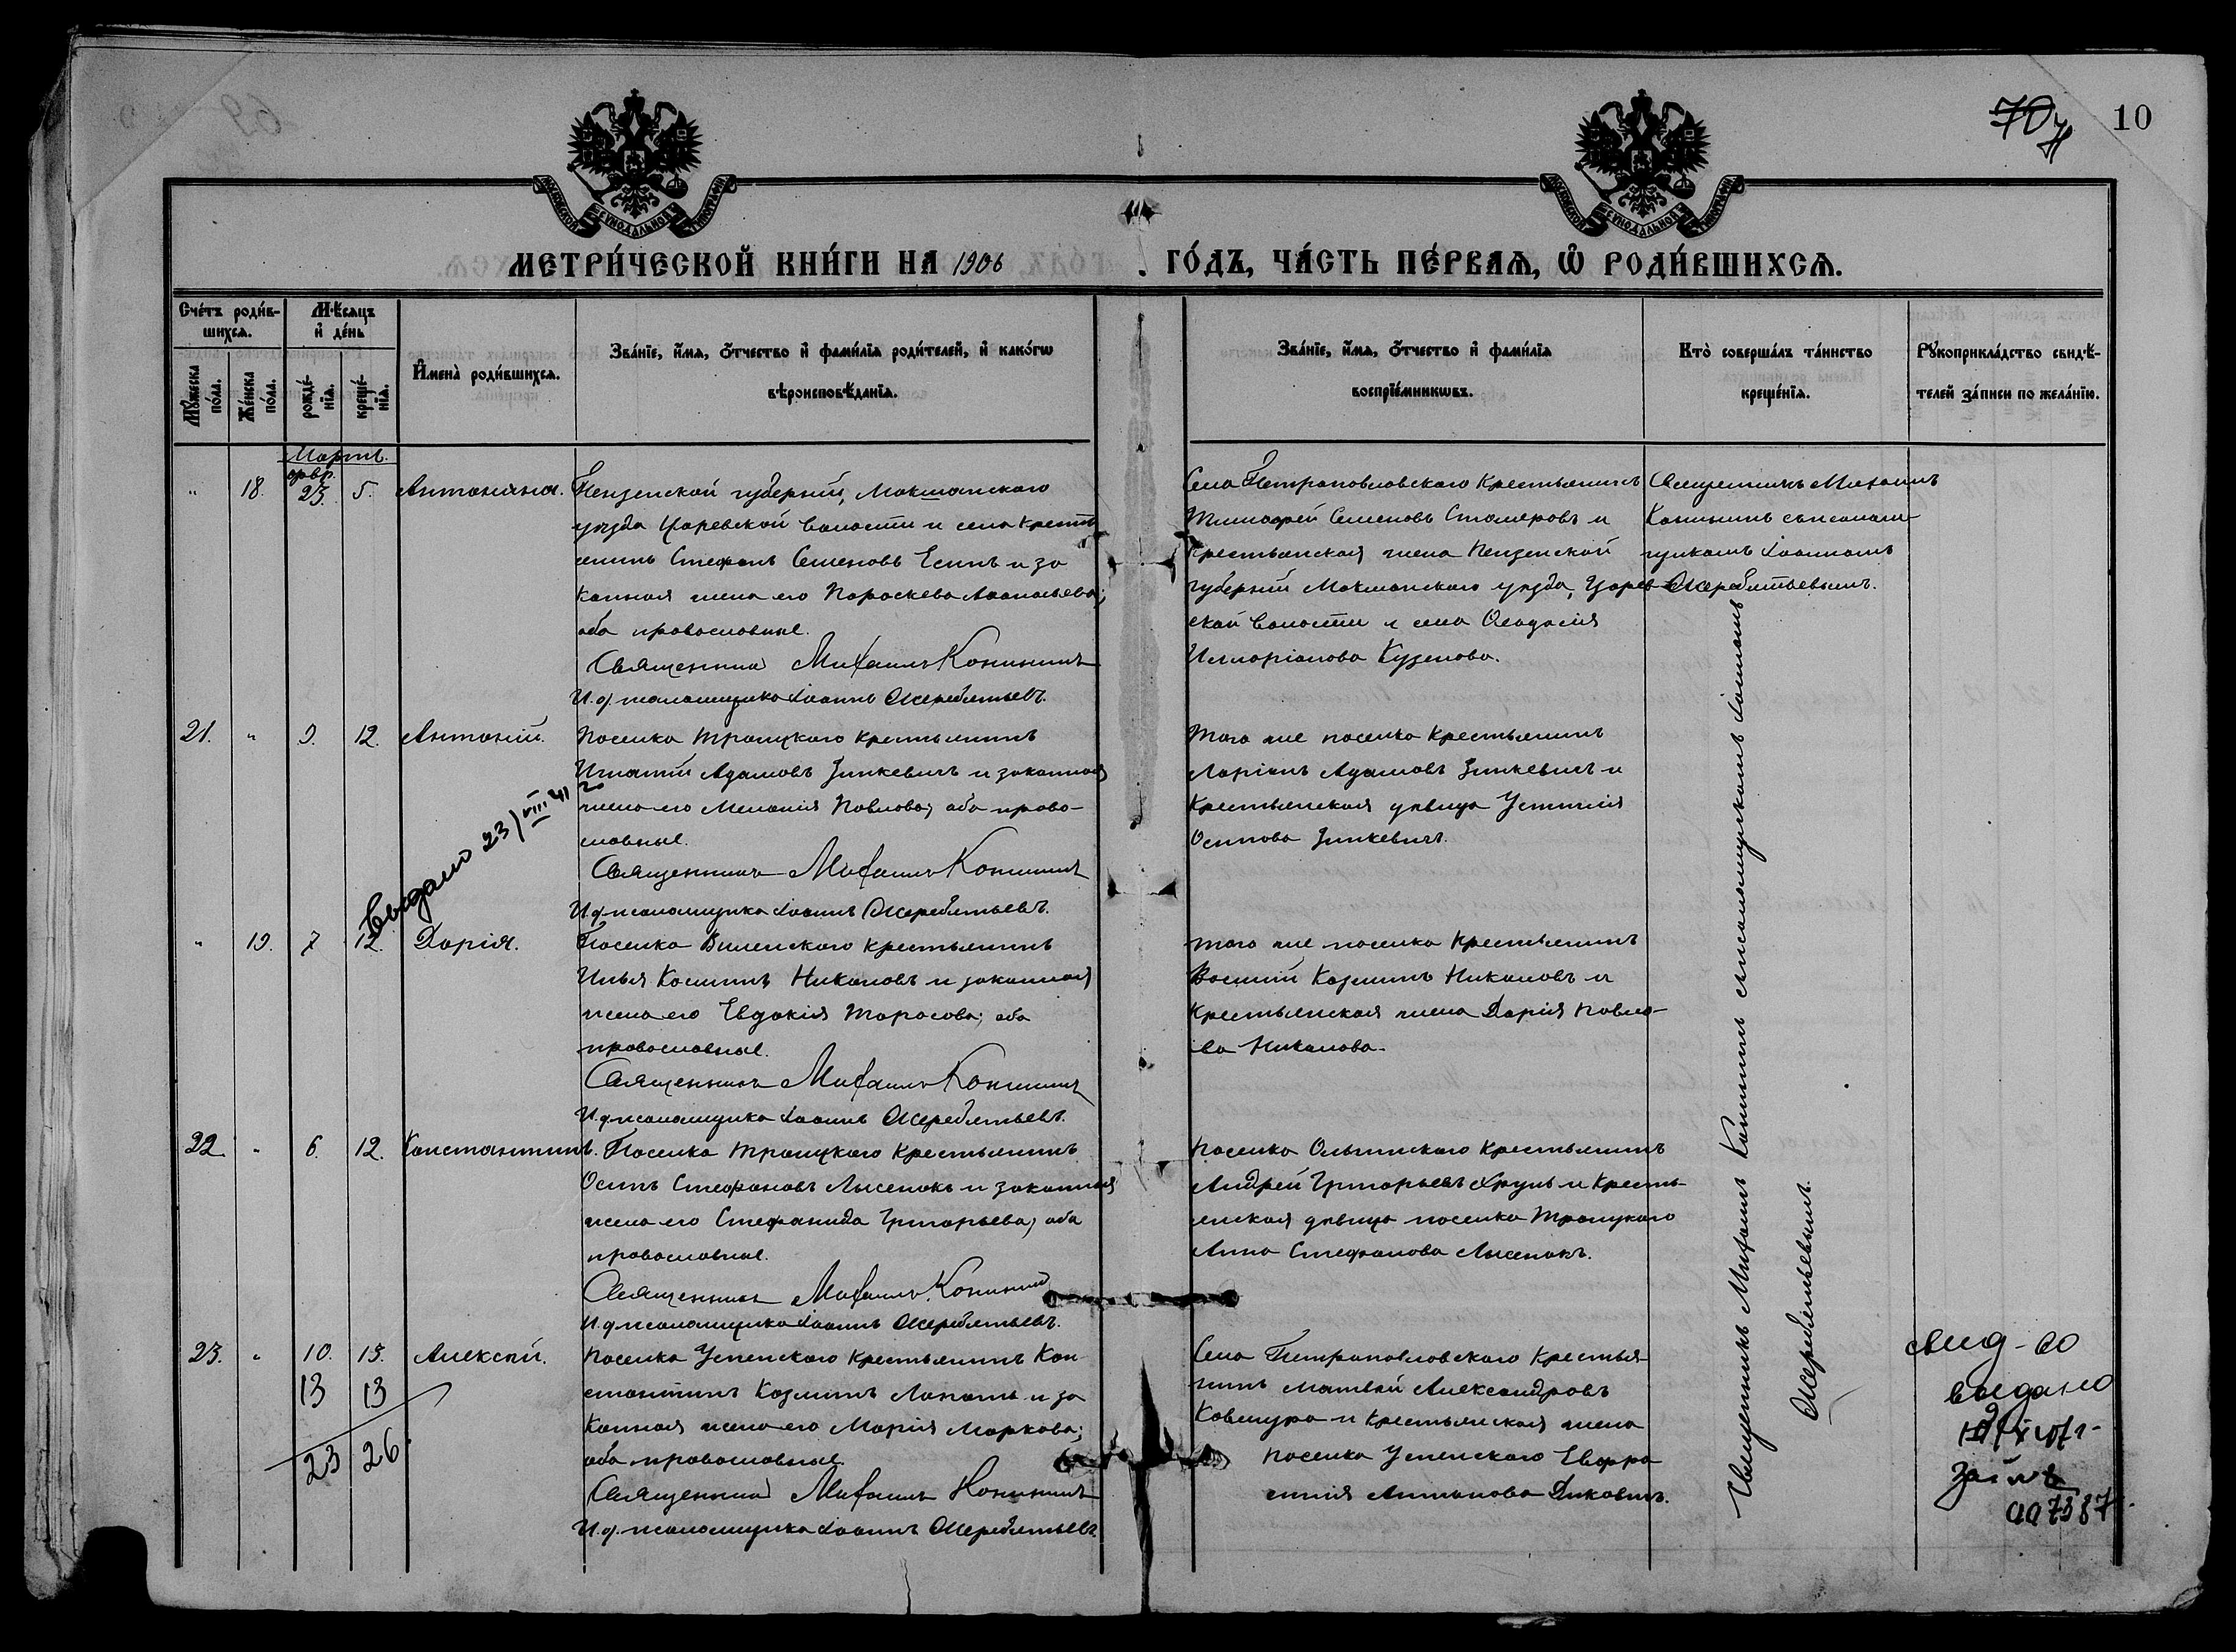 70
10
МОСКОВСКОЙ СѴНОДАЛЬНОЙ ТИПОГРАФІИ
МОСКОВСКОЙ СѴНОДАЛЬНОЙ ТИПОГРАФІИ
МЕТРИ́ЧЕСКОЙ КНИ́ГИ НА 1906 ГО́ДЪ, ЧА́СТЬ ПЕ́РВАѦ, Ѽ РОДИ́ВШИХСѦ.
Сче́тъ роди́в-
шихсѧ.
Мѣ́сяцъ
и҆ де́нь
Мꙋ́жеска
по́ла.
Же́нска
по́ла.
рожде́-
нїѧ.
креще́-
нїѧ.
И҆мена̀ роди́вшихсѧ.
Зва́нїе, и҆́мѧ, ѻ҆́тчество и҆ фами́лїѧ роди́телей, и҆ како́гѡ
вѣроисповѣ́данїѧ.
Зва́нїе, и҆́мѧ, ѻ҆́тчество и҆ фами́лїѧ
воспрїе́мникѡвъ.
Кто̀ соверша́лъ та́инство
креще́нїѧ.
Рꙋкоприкла́дство свидѣ́-
телей за́писи по жела́нїю.
Мартъ.
февр.
" 18. 23. 5. Антонина.
Пензенской губерніи, Мокшанскаго
уѣзда Царевской волости и села кресть
янинъ Стефанъ Семеновъ Есинъ и за
конная жена его Параскева Аѳанасьева;
оба православные.
Священникъ Михаилъ Конининъ
И. д. псаломщика Іоаннъ Жеребятьевъ.
Села Петропавловскаго крестьянинъ
Тимофей Семеновъ Столяровъ и
крестьянская жена Пензенской
губерніи Мокшанскаго уѣзда, Царев-
ской волости и села Ѳеодосія
Илларіонова Кузенова.
Священникъ Михаилъ
Конининъ съ псалом-
щикомъ Іоанномъ
Жеребятьевымъ.
21. " 9. 12. Антоній.
Поселка Троицкаго крестьянинъ
Игнатій Адамовъ Зинкевичъ и законная
жена его Меланія Павлова; оба право-
славные.
Священникъ Михаилъ Конининъ
И. д. псаломщика Іоаннъ Жеребятьевъ.
Того же поселка крестьянинъ
Ларіонъ Адамовъ Зинкевичъ и
крестьянская дѣвица Устинія
Осипова Зинкевичъ.
Выдано 23/VIII 41
" 19. 7 12. Дарія.
Поселка Виленскаго крестьянинъ
Илья Косминъ Никоновъ и законная
жена его Евдокія Тарасова; оба
православные.
Священникъ Михаилъ Конининъ
И. д. псаломщика Іоаннъ Жеребятьевъ.
того же поселка крестьянинъ
Василій Козминъ Никоновъ и
крестьянская жена Дарія Павло-
ва Никонова.
22. " 6. 12. Константинъ.
Поселка Троицкаго крестьянинъ
Осипъ Стефановъ Лысенокъ и законная
жена его Стефанида Григорьева; оба
православные.
Священникъ Михаилъ Конининъ
И. д. псаломщика Іоаннъ Жеребятьевъ.
Поселка Ольгинскаго крестьянинъ
Андрей Григорьевъ Хруль и кресть-
янская дѣвица поселка Троицкаго
Анна Стефанова Лысенокъ.
23. " 10. 13. Алексѣй.
Поселка Успенскаго крестьянинъ Кон-
стантинъ Козминъ Лопать и за
конная жена его Марія Маркова;
оба православные.
Священникъ Михаилъ Конининъ
И. д. псаломщика Іоаннъ Жеребятьевъ.
Села Петропавловскаго крестья-
нинъ Матвѣй Александровъ
Ковшура и крестьянская жена
поселка Успенскаго Евфро
синія Антонова Диковичъ.
13 13
23 26
Священникъ Михаилъ Конининъ съ псаломщикомъ Іоанномъ
Жеребятьевымъ.
свид-во
выдано